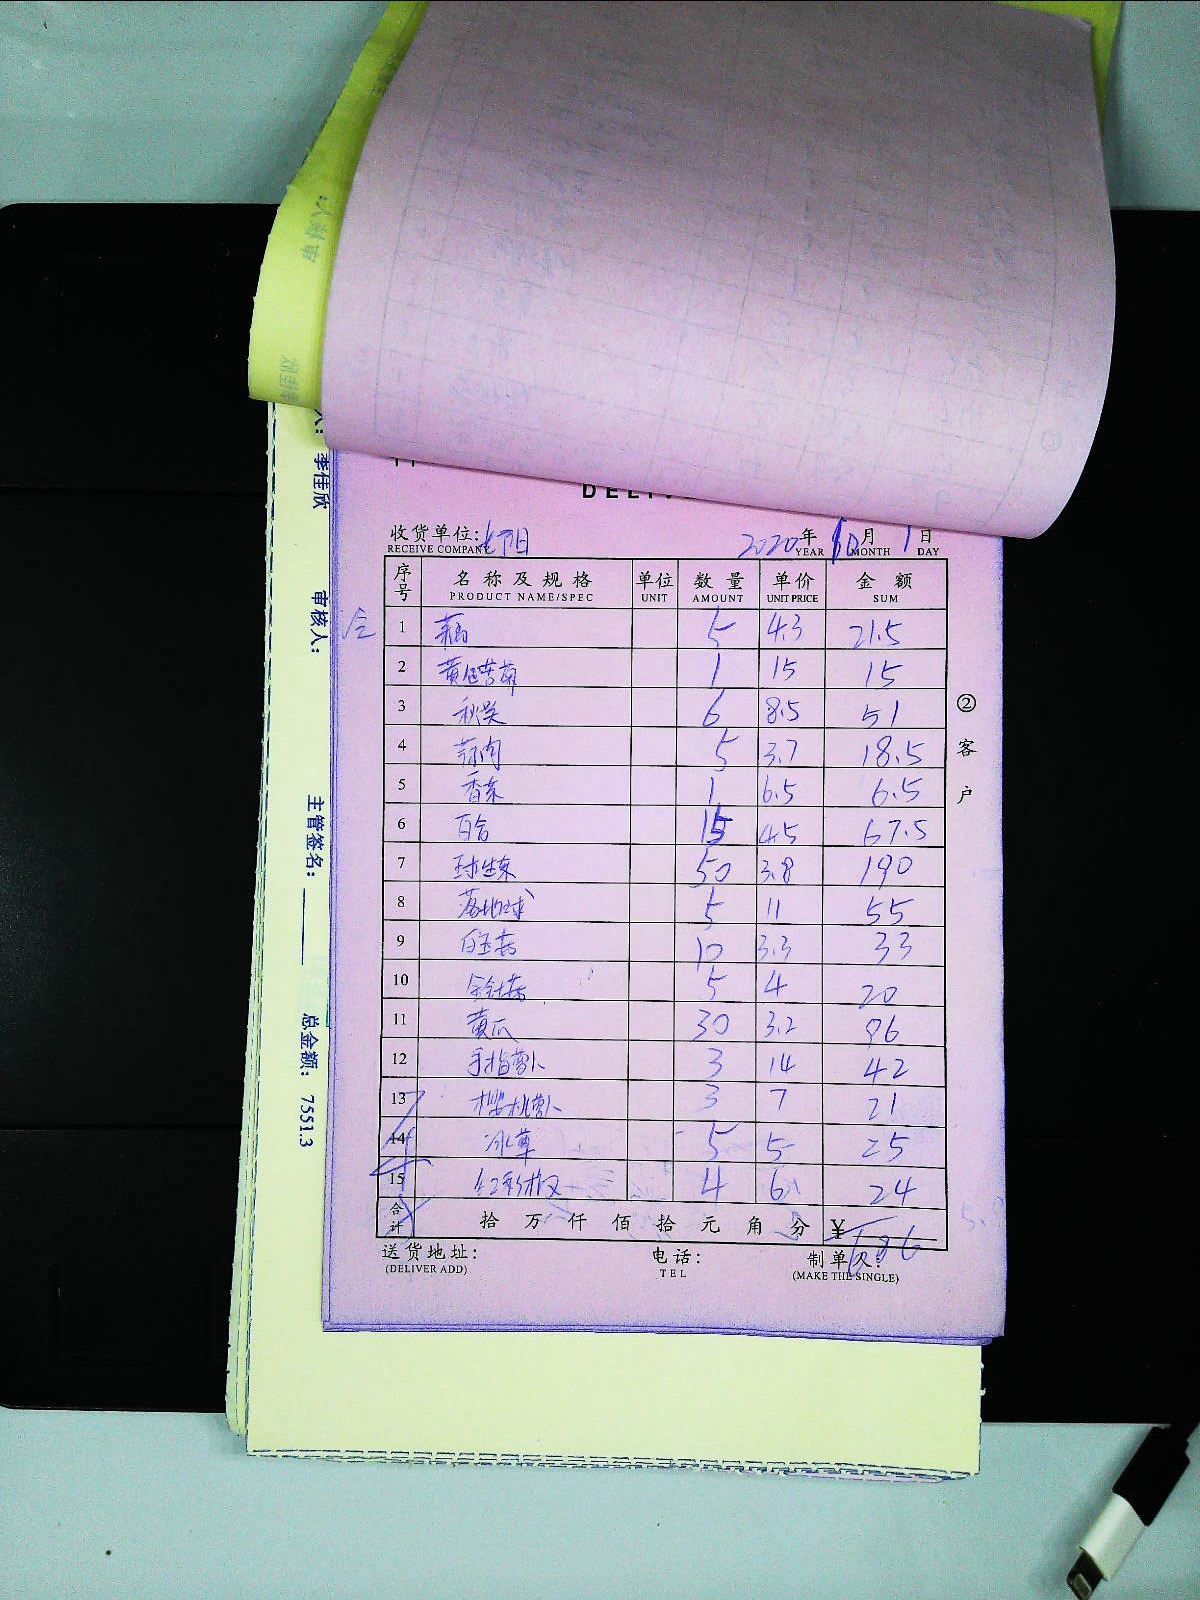 DELIV
收货单位:
RECEIVE COMPANY
2020年10月1日
YEAR MONTH DAY
序号 名称及规格 单位 数量 单价 金额
PRODUCT NAME/SPEC UNIT AMOUNT UNIT PRICE SUM
1 5 4.3 21.5
2 黄色苦菊 1 15 15
3 秋葵 6 8.5 51
4 蒜肉 5 3.7 18.5
5 香菜 1 6.5 6.5
6 百合 15 4.5 67.5
7 球生菜 50 3.8 190
8 落地球 5 11 55
9 白玉菇 10 3.3 33
10 金针菇 5 4 20
11 黄瓜 30 3.2 96
12 手指萝卜 3 14 42
13 樱桃萝卜 3 7 21
14 冰草 5 5 25
15 红彩椒 4 6 24
合计 拾万仟佰拾元角分 ¥ 686
送货地址: 电话: 制单人:
(DELIVER ADD) TEL (MAKE THE SINGLE)
②客户
李佳欣
审核人:
主管签名:
总金额: 7551.3